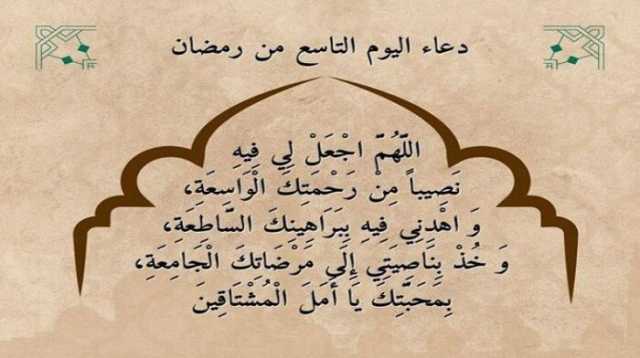 دعاء اليوم التاسع من رمضان
اللَّهُمَّ اجْعَلْ لِي فِيهِ
نَصِيباً مِنْ رَحْمَتِكَ الْوَاسِعَةِ،
وَ اهْدِنِي فِيهِ بِبَرَاهِينِكَ السَّاطِعَةِ،
وَ خُذْ بِنَاصِيَتِي إِلَى مَرْضَاتِكَ الْجَامِعَةِ،
بِمَحَبَّتِكَ يَا أَمَلَ الْمُشْتَاقِينَ